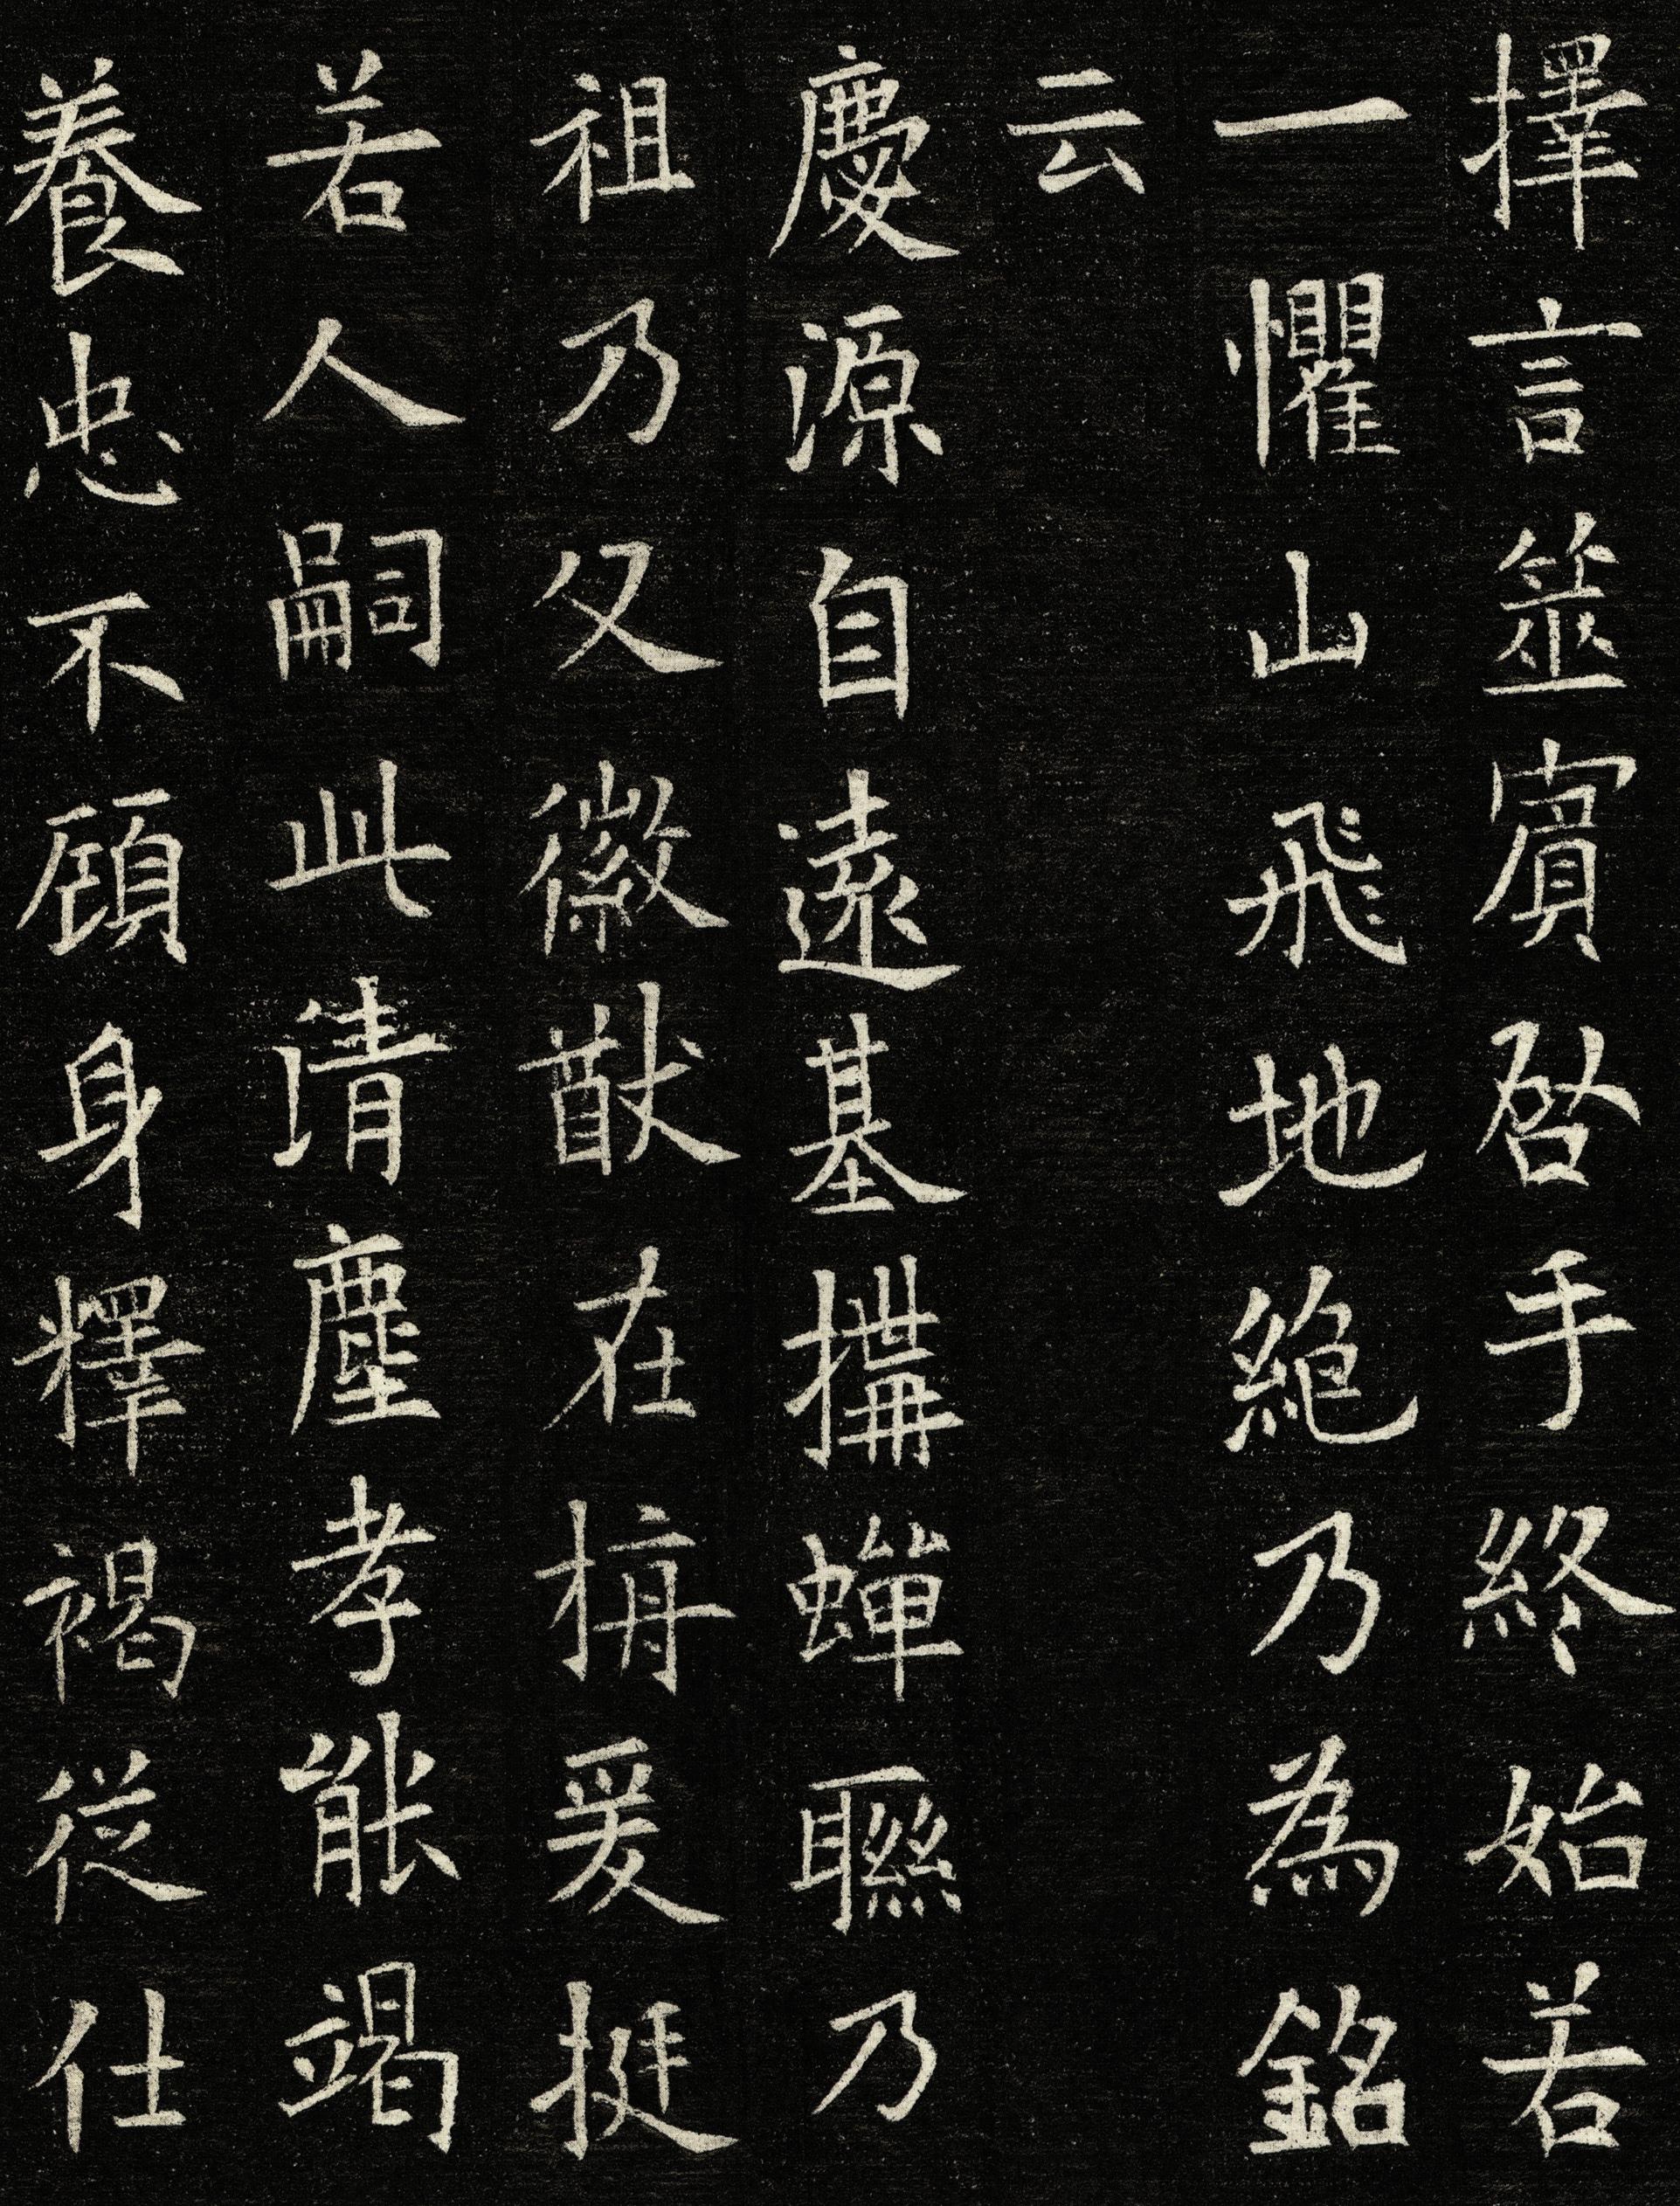 擇言筮賓啓手終始若
一懼山飛地絕乃為銘
云
慶源自遠基搆蟬聯乃
祖乃父徽猷在旃爰挺
若人嗣此清塵孝能竭
養忠不顧身釋褐從仕